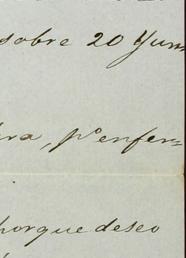 sobre 20 Yun
ra, p.º enfer=
porque deseo